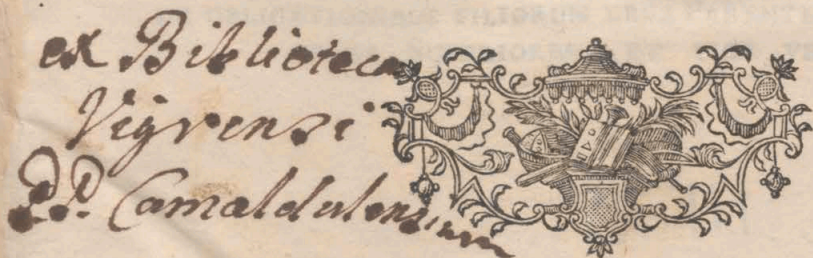 ex Biblioteca
Vigrensi
PP. Camaldulensium